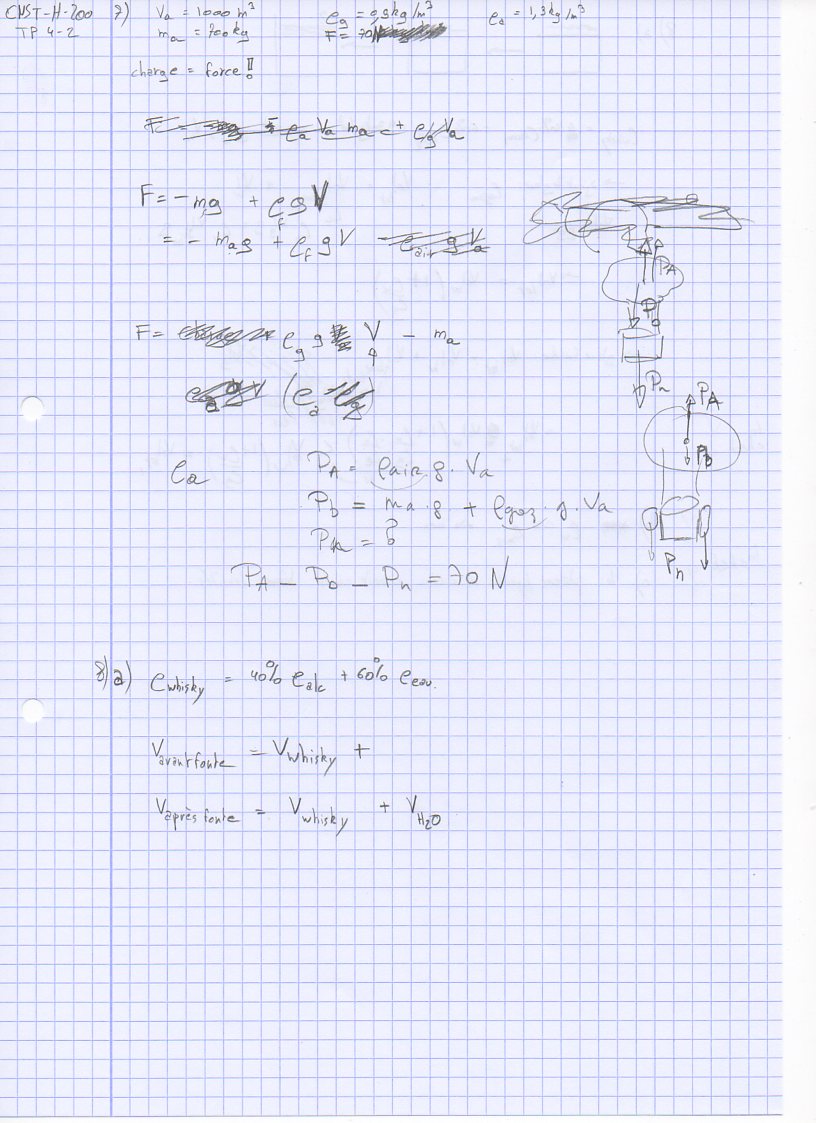 CNST-H-200 7) Va = 1000 m³ ρg = 0,5kg/m³ ρa = 1,3kg/m³
TP 4-2 ma = 700kg F = 70N
charge = force!!
F = -mg + ρf g V
= - ma g + ρf g V
F = ρg g V - ma
ρa
PA = ρair . g . Va
Pb = ma . g + ρgaz . g . Va
PA - Pb - Pn = 70 N
PA
Pb
Pn
PA
Pb
Pn
8) a) ρwhisky = 40% ρalc + 60% ρeau.
Vavant fonte = Vwhisky +
Vaprès fonte = Vwhisky + VH₂O